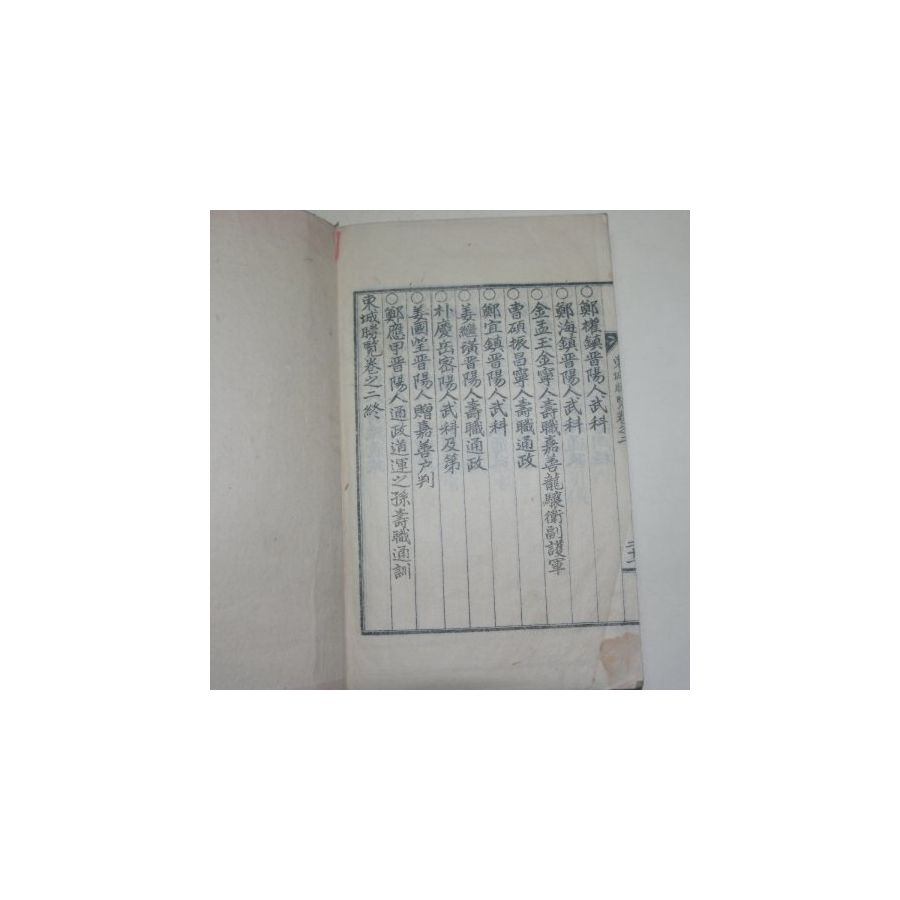 ○鄭權鎮晋陽人武科
○鄭海鎮晋陽人武科
○金孟玉金寧人壽職嘉善龍驤衛副護軍
○曺碩振昌寧人壽職通政
○鄭宜鎮晋陽人武科
○姜繼潢晋陽人壽職通政
○朴慶岳密陽人武科及第
○姜國望晋陽人贈嘉善户判
○鄭應甲晋陽人通政道運之孫壽職通訓
東城勝覽卷之二終
東城勝覽卷之二